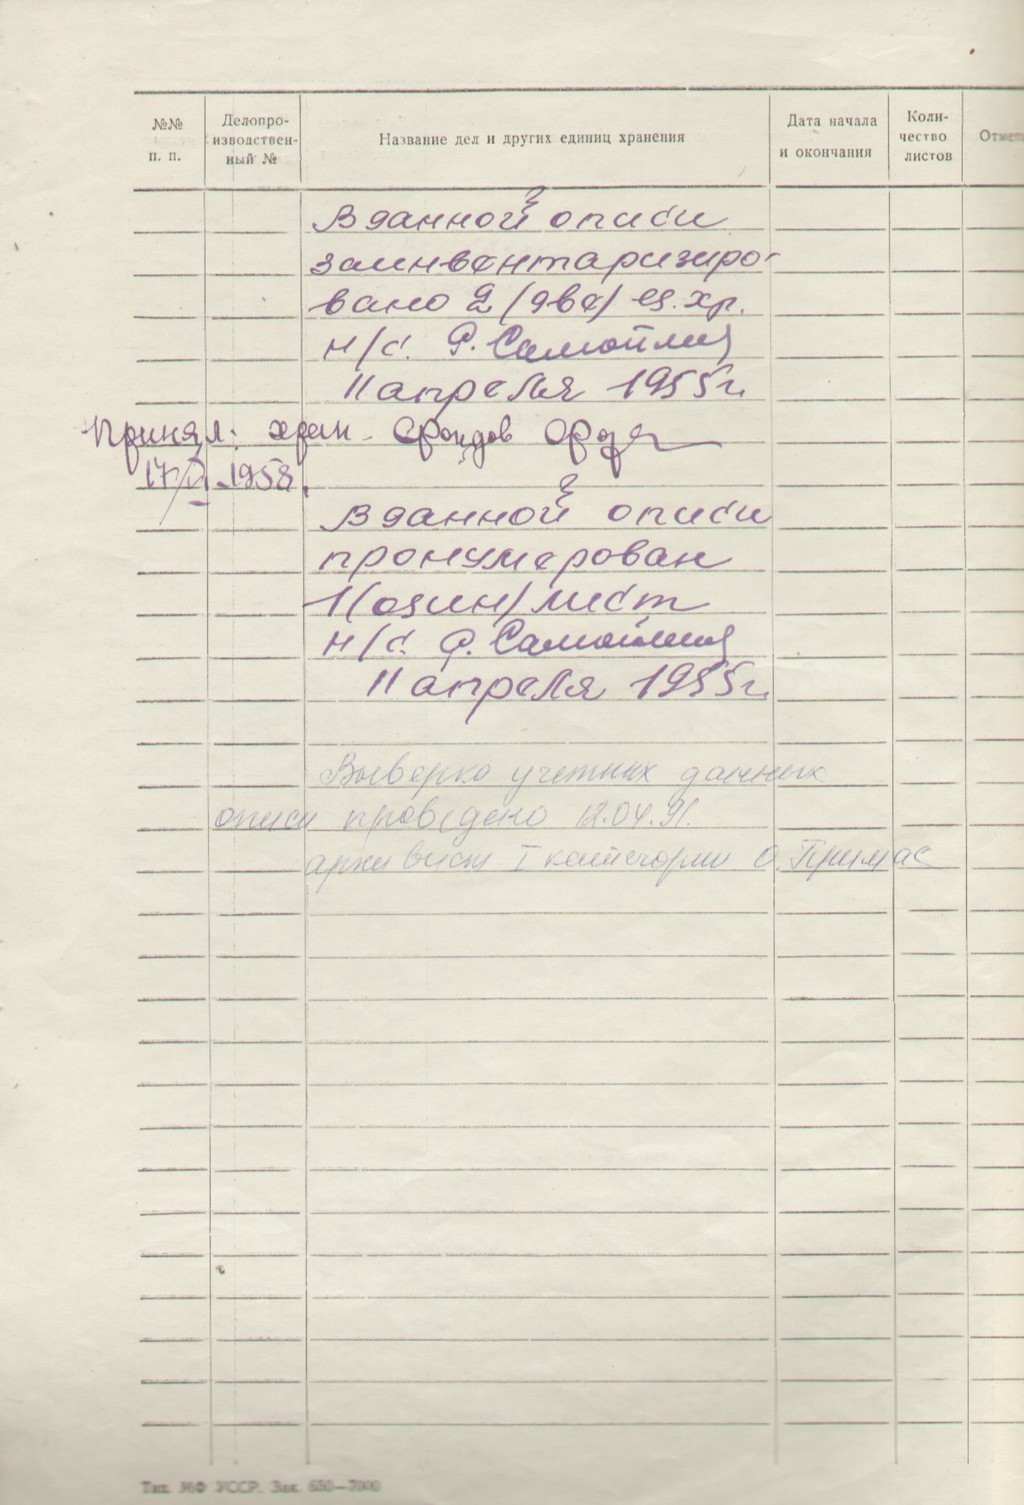 №№ п. п.
Делопро-
изводствен-
ный №
Название дел и других единиц хранения
Дата начала
и окончания
Коли-
чество
листов
Отмеп
В данной описи
заинвентаризиро-
вано 2 (две) ед. хр.
н/с. Р. Самойлил
11 апреля 1955 г.
Принял: хран. фондов
17/ 1958.
В данной описи
пронумерован
1 (один) лист
н/с. Р.
11 апреля 1955 г.
Выверка учетных данных
описи проведено 12.04.91.
архивист I категории О. Примас
Тип. МФ УССР. Зак. 650—7000